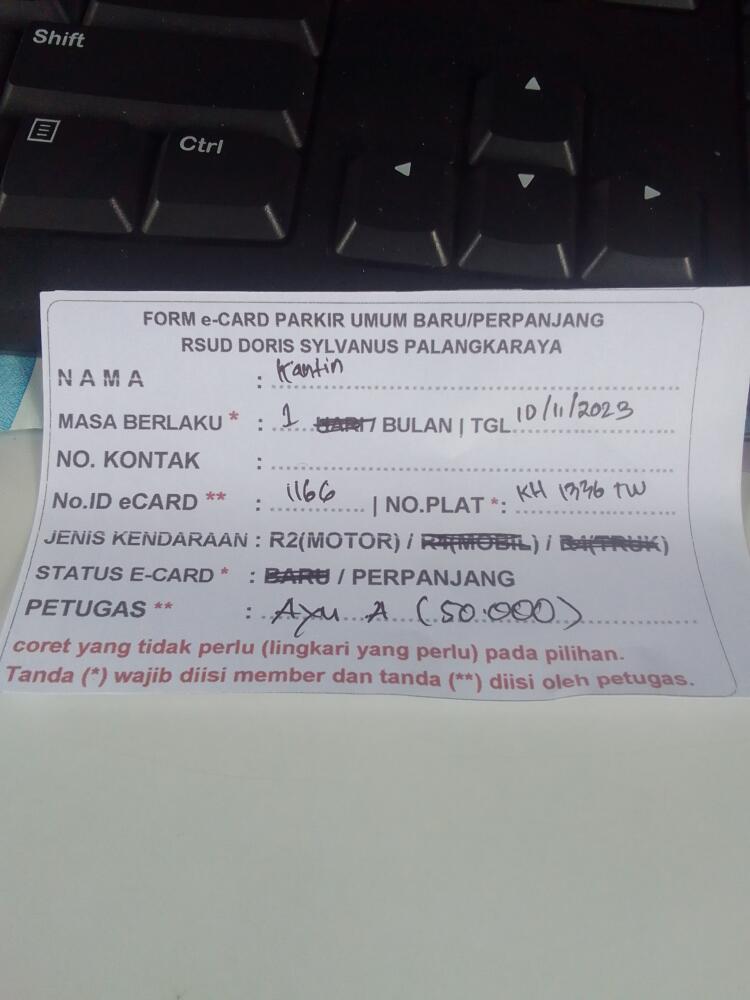 Shift
Ctrl
FORM e-CARD PARKIR UMUM BARU/PERPANJANG
RSUD DORIS SYLVANUS PALANGKARAYA
NAMA : Kantin
MASA BERLAKU * : 1 HARI / BULAN | TGL 10/11/2023
NO. KONTAK :
No.ID eCARD ** : 1166 | NO.PLAT *: KH 1336 TW
JENIS KENDARAAN : R2(MOTOR) / R4(MOBIL) / R4(TRUK)
STATUS E-CARD * : BARU / PERPANJANG
PETUGAS ** : Ayu A (50.000)
coret yang tidak perlu (lingkari yang perlu) pada pilihan.
Tanda (*) wajib diisi member dan tanda (**) diisi oleh petugas.